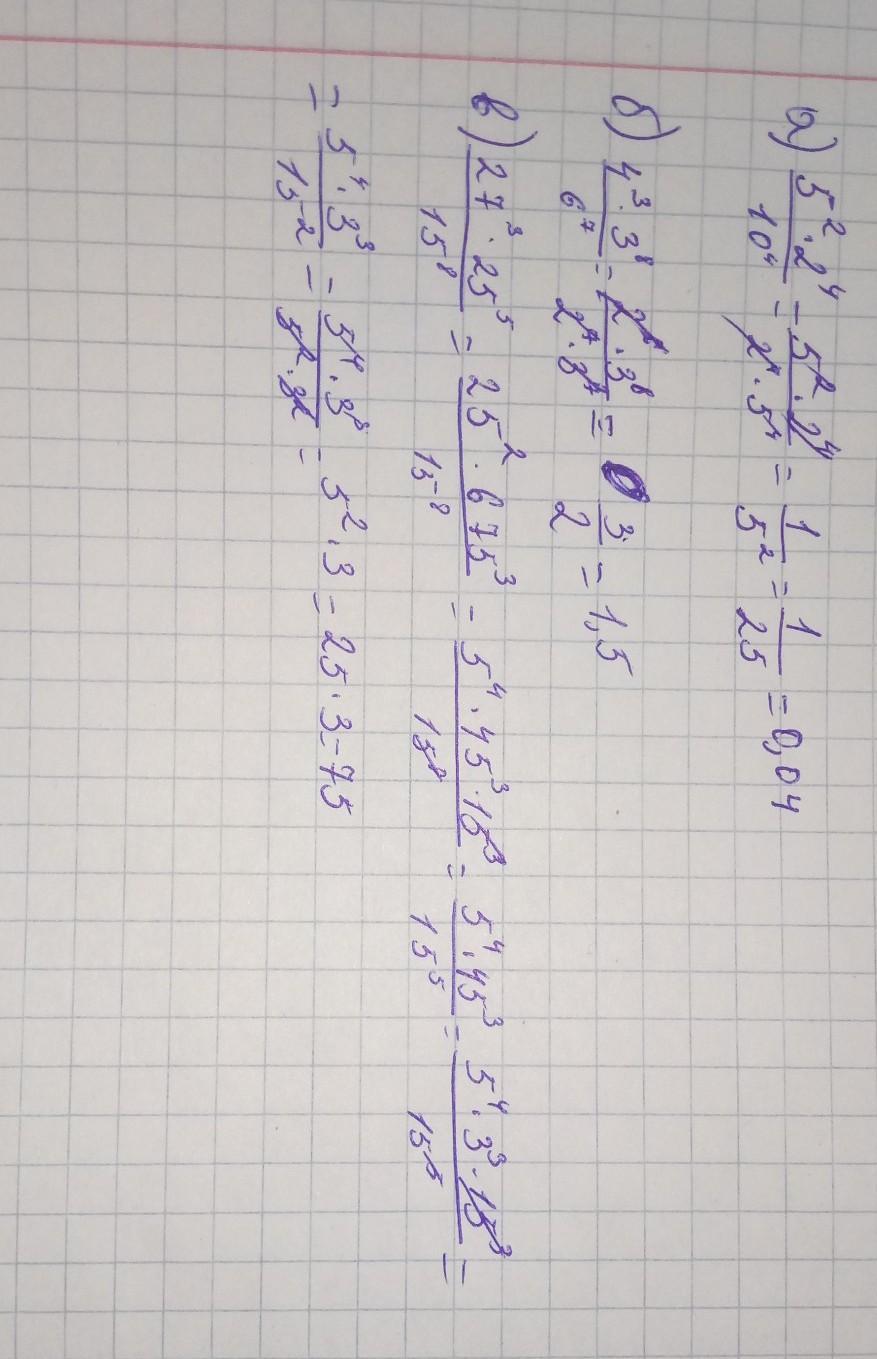 а) 5²·2⁴/10⁴ = 5²·2⁴/2⁴·5⁴ = 1/5² = 1/25 = 0,04
б) 4³·3⁸/6⁷ = 2⁶·3⁸/2⁷·3⁷ = 3/2 = 1,5
в) 27³·25⁵/15⁸ = 25²·675³/15⁸ = 5⁴·45³·15³/15⁸ = 5⁴·45³/15⁵ = 5⁴·3³·15³/15⁵ =
= 5⁴·3³/15² = 5⁴·3³/5²·3² = 5²·3 = 25·3 = 75